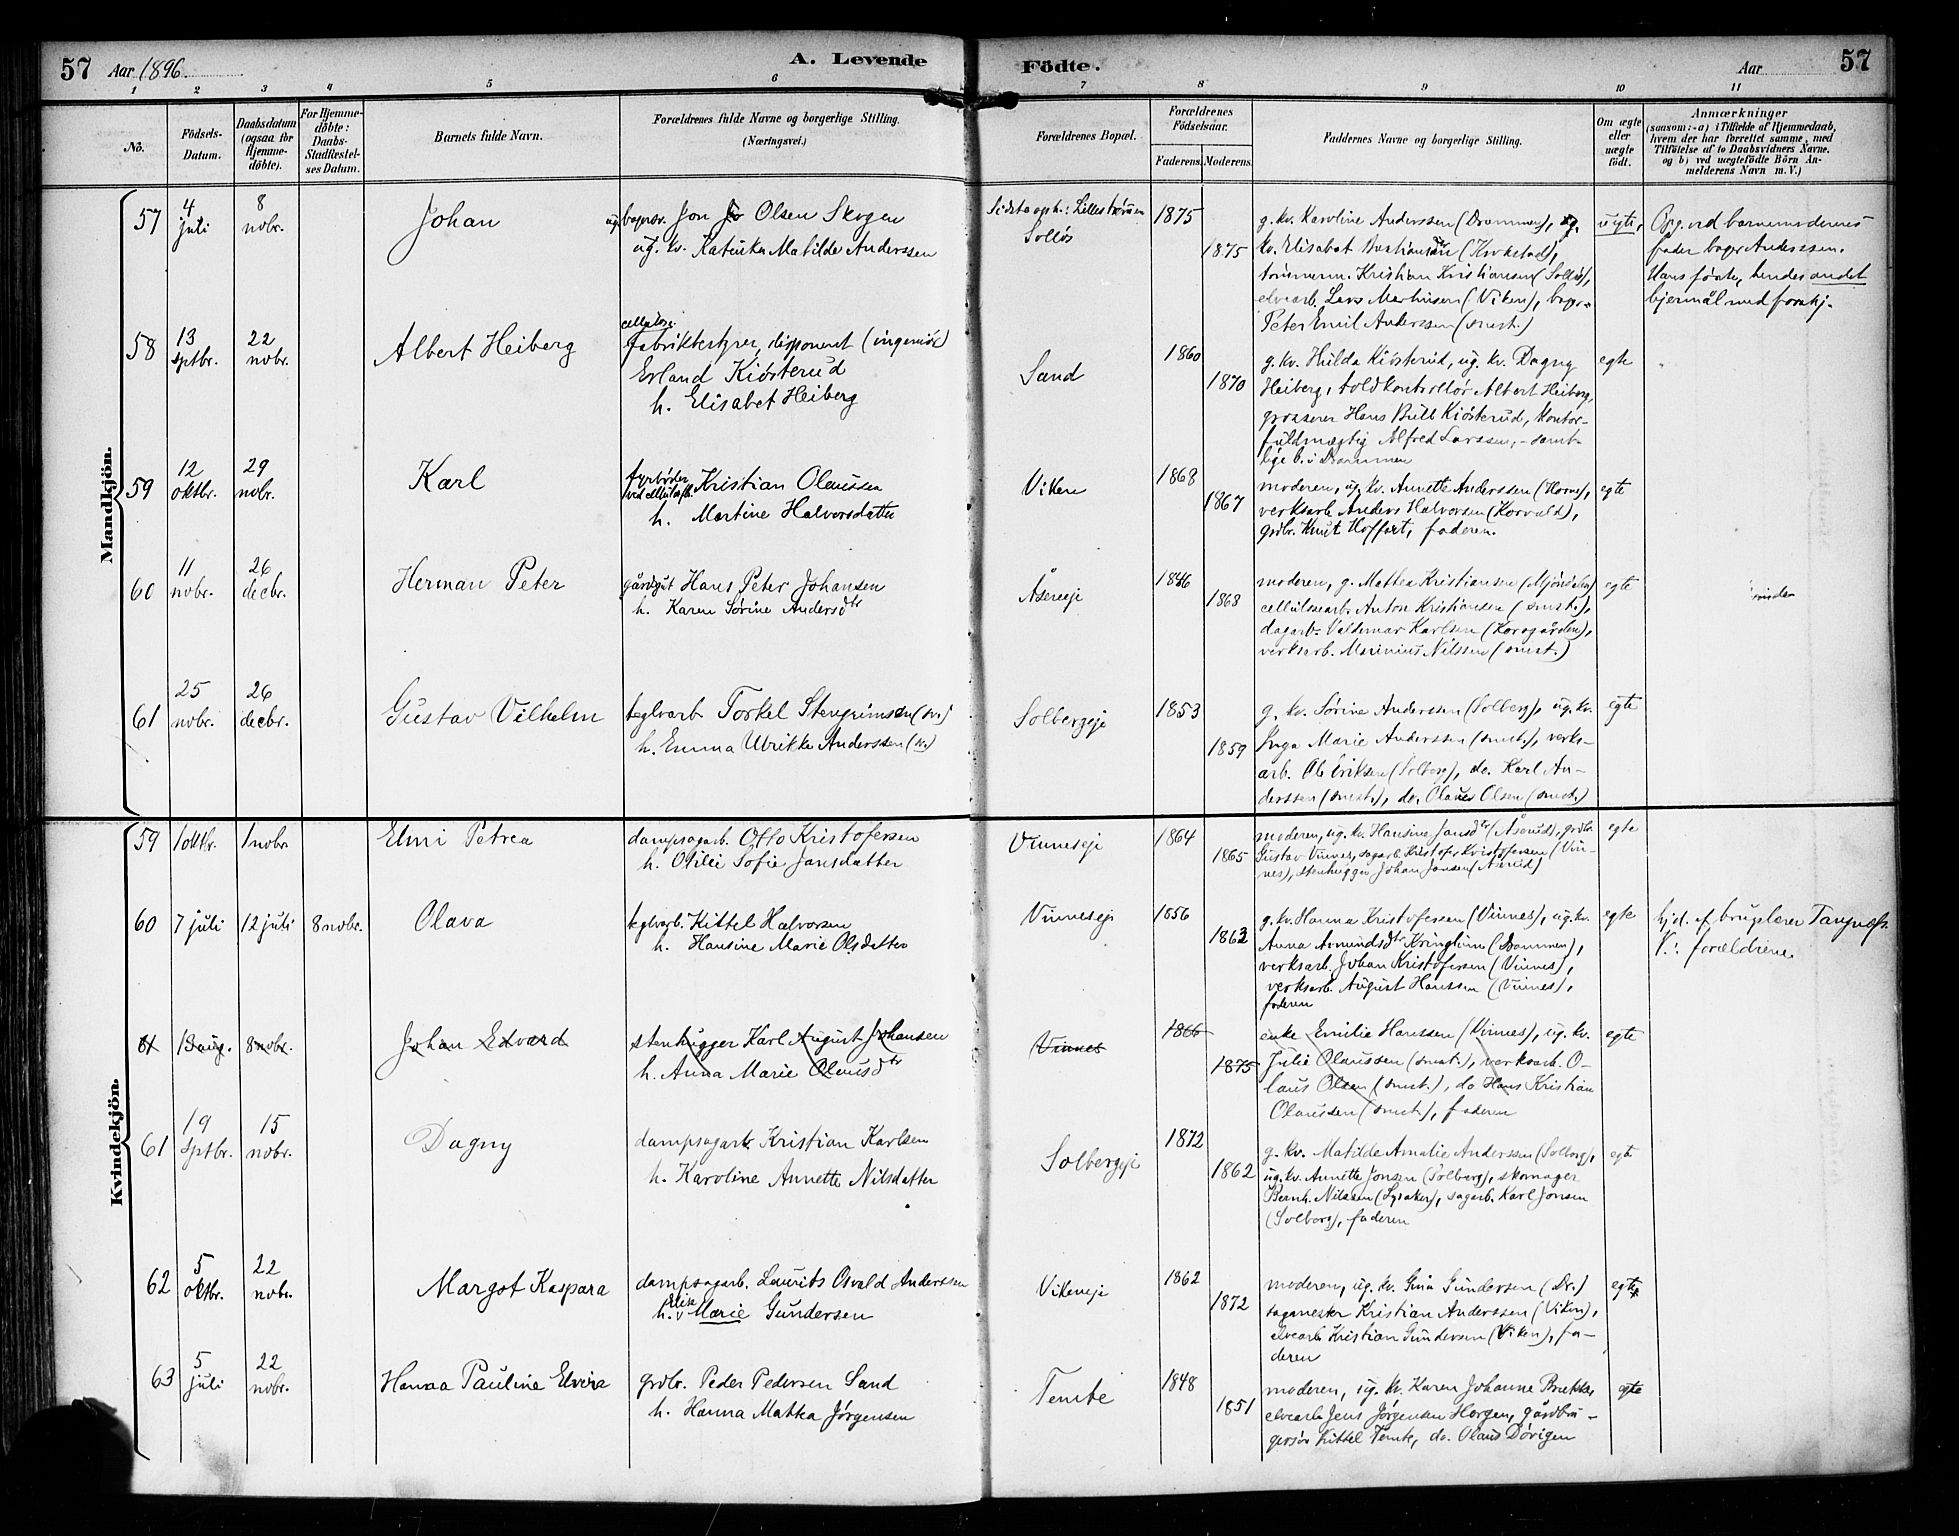 57 Aar 1896. A. Levende Födte. Aar 57
1 2 3 4 5 6 7 8 9 10 11
No.
Födsels-Datum.
Daabsdatum (ogsaa for Hjemme-döbte).
For Hjemme-döbte: Daabs-Stadfæstel-ses Datum.
Barnets fulde Navn.
Forældrenes fulde Navne og borgerlige Stilling.
(Næringsvei.)
Forældrenes Bopæl.
Forældrenes Födselsaar.
Faderens. Moderens.
Faddernes Navne og borgerlige Stilling.
Om ægte eller uægte födt.
Anmærkninger
(saasom:-a) i Tilfælde af Hjemmedaab, hvem der har forrettet samme, med Tilföielse af to Daabsvidners Navne, og b) ved uægtefödte Börn An-melderens Navn m. V.)
Mandkjön.
57 4 juli 8 nobr. Johan
ug. bogrsv. Jon Olsen Skogen
ug. kv. Katinka Matilde Anderssen
Sidste oph.: Lillestrømmen
Solløs
1875
1875
g. kv. Karoline Anderssen (Drammen), ug.
kv. Elisabet
tømmerm. Kristian Kristiansen (Solløs),
elvearb. Lars Marthinsen (Viken),
Peter Emil Anderssen (smst.)
uegte,
Opg. ved barnemoderens
fader Anderssen.
Hans første, hendes andet
58 13 sptbr. 22 nobr. Albert Heiberg
cellulose-
fabrikbestyrer, disponent (ingeniør)
Erland Kiøsterud
h. Elisabet Heiberg
Sand
1860
1870
g. kv. Hulda Kiøsterud, ug. kv. Dagny
Heiberg, toldkontrollør Albert Heiberg,
grosserer Hans Bull Kiøsterud, kontor-
fuldmægtig Alfred Larssen, - samt-
lige b. i Drammen
egte
59 12 oktbr. 29 nobr. Karl
fyrbøder
ved cellulosefb. Kristian Olaussen
h. Martine Halvorsdatter
Viken
1868
1867
moderen, ug. kv. Annette Anderssen (Horne),
verksarb. Anders Halvorsen (Korvald),
grdbr. Knut Hoffart, faderen.
egte
60 11 nobr. 26 decbr. Herman Peter
gårdgut Hans Peter Johansen
h. Karen Sørine Andersdtr
Åserueje
1846
1868
moderen, g. Mathea Kristiansen (Mjøndalen)
cellulosearb. Anton Kristiansen (smst.),
dagarb. Valdemar Karlsen (Horsgården),
verksarb. Marinius Nilssen (smst.)
egte
61 25 nobr. 26 decbr. Gustav Vilhelm
teglvarb Torkel Stengrimsen (sv.)
h. Emma Ulrikke Anderssen (n.)
Solbergeje
1853
1859
g. kv. Sørine Anderssen (Solberg), ug. kv.
Inga Marie Anderssen (smst.), verks-
arb. Ole Eriksen (Solberg), do. Karl An-
derssen (smst.), do. Olaves Olsen (smst.)
egte
Kvindekjön.
59 1 oktbr. 1 nobr. Elmi Petrea
dampsagarb. Otto Kristofersen
h. Otilie Sofie Jansdatter
Vinneseje
1864
1865
moderen, ug. kv. Hansine Jansdtr (Åserud), grdbr.
Gustav Vinnes, sagarb. Kristofer Kristofersen (Vin-
nes), stenhugger Johan Jansen (Åserud)
egte
60 7 juli 12 juli 8 nobr. Olava
teglvarb. Kittel Halvorsen
h. Hansine Marie Olsdatter
Vinneseje
1856
1862
g. kv. Hanna Kristofersen (Vinnes), ug. kv.
Anna Amundsdtr Kringlum (Drammen),
verksarb. Johan Kristofersen (Vinnes),
verksarb. August Hanssen (Vinnes),
faderen
egte
hj.d. af kirugslærer Tangnæs.
V.: forældrene
61 13 aug. 8 nobr. Johan Edvard
stenhugger Karl August Johansen
h. Anna Marie Olausdtr
Vinnes
1866
1875
enke Emilie Hanssen (Vinnes), ug. kv.
Julie Olaussen (smst.), verksarb. O-
laus Olsen (smst.), do Hans Kristian
Olaussen (smst.), faderen
egte
61 19 sptbr. 15 nobr. Dagny
dampsagarb. Kristian Karlsen
h. Karoline Annette Nilsdatter
Solbergeje
1872
1862
g. kv. Matilde Amalie Anderssen (Solberg),
ug. kv. Annette Jonsen (Solberg), skomager
Bernh. Nilssen (Lysaker), sagarb. Karl Jonsen
(Solberg), faderen
egte
62 5 oktbr. 22 nobr. Margot Kaspara
dampsagarb. Laurits Osvald Anderssen
h. Elise Marie Gundersen
Vikeneje
1862
1872
moderen, ug. kv. Gina Gundersen (Dr.)
sagmester Kristian Anderssen (Viken),
elvearb. Kristian Gundersen (Viken), fa-
deren
egte
63 5 juli 22 nobr. Hanna Pauline Elvira
grdbr. Peder Pedersen Sand
h. Hanna Mathea Jørgensen
Temte
1848
1851
moderen, ug. kv. Karen Johanne Brekke,
elvearb. Jens Jørgensen Horgen, gårdbru-
gersøn Kittel Temte, do. Olaus Dørigen
egte